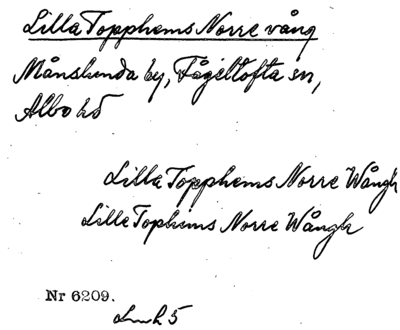 Lilla Topphems Norre vång
Månslunda by, Fågeltofta sn,
Albo hd
Lilla Topphems Norre Wångh
Lille Tophems Norre Wångh
Nr 6209.